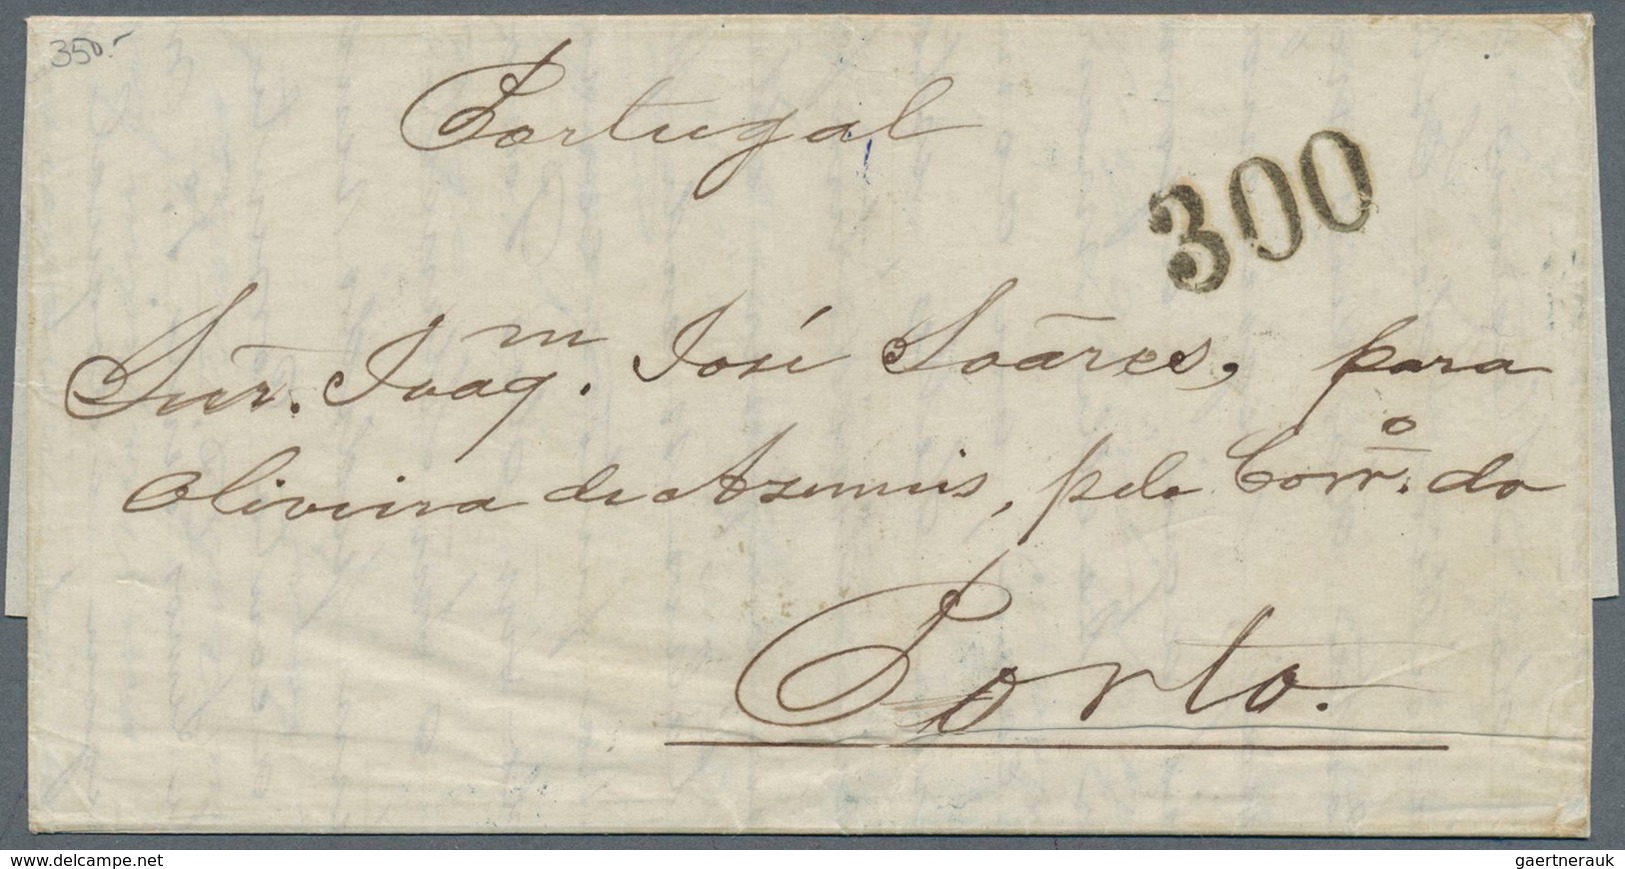 350.-
Portugal
300
Snr. Joaq.m José Soāres, para
Oliveira de Azemeis, pelo Corr.o do
Porto.
gaertnerauk
www.delcampe.net